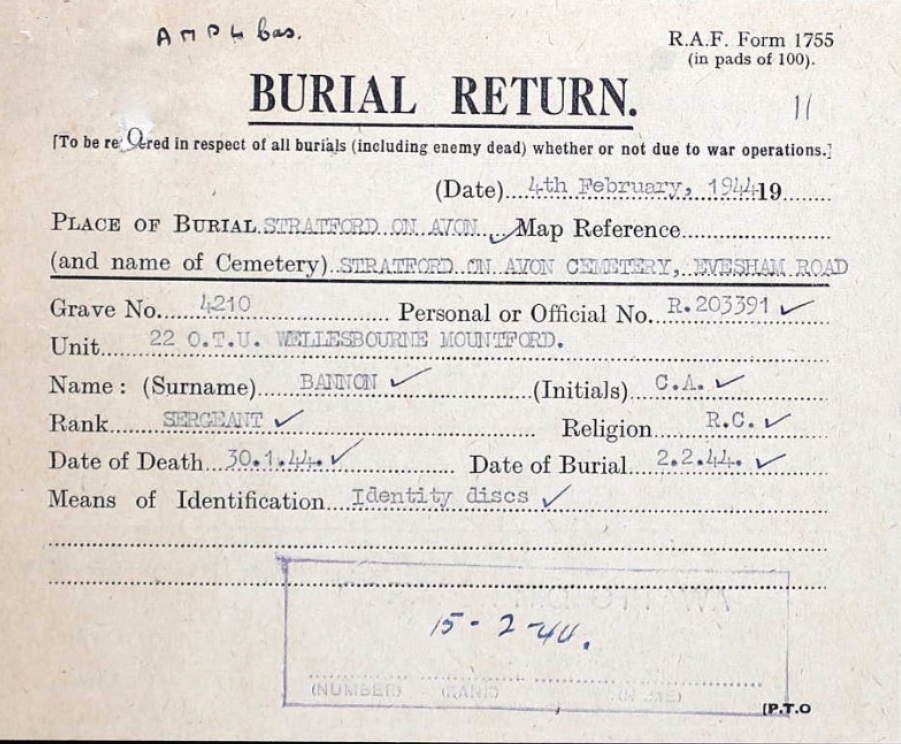 A M P 4 bas.
R.A.F. Form 1755
(in pads of 100).
BURIAL RETURN.
11
[To be re ered in respect of all burials (including enemy dead) whether or not due to war operations.]
(Date) 4th February, 1944 19
PLACE OF BURIAL STRATFORD ON AVON Map Reference
(and name of Cemetery) STRATFORD ON AVON CEMETERY, EVESHAM ROAD
Grave No. 4210 Personal or Official No. R.203391
Unit 22 O.T.U. WELLESBOURNE MOUNTFORD.
Name: (Surname) BANNON (Initials) C.A.
Rank SERGEANT Religion R.C.
Date of Death 30.1.44. Date of Burial 2.2.44.
Means of Identification Identity discs
15-2-44.
(NUMBER) (RANK) (NAME)
[P.T.O